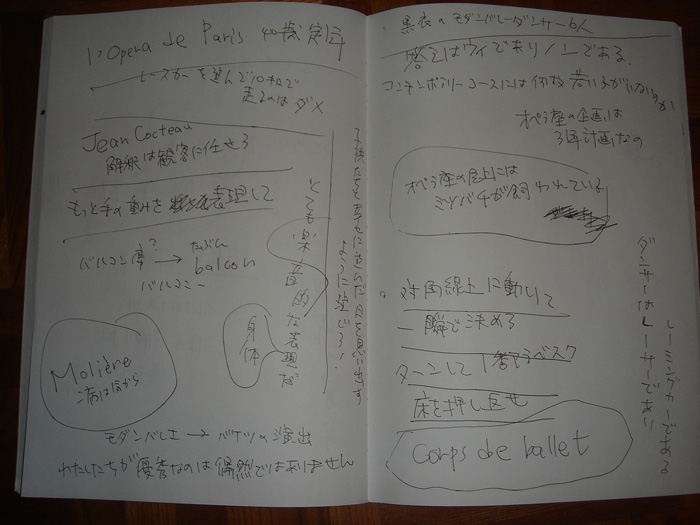 l'Opera de Paris 40歳定年
レースカーを選んで10秒で
走るのはダメ
Jean Cocteau
解釈は観客に任せろ
もっと手の動きを 表現して
バルコン席? → たぶん balcon
バルコニー
Molière
病は気から
身体
とても楽音的な表現だ
子供たちと幸せに遊んだ日を思い出す
ように演じろ!
モダンバレエ → バケツの演出
わたしたちが優秀なのは偶然ではありません
黒衣のモダンバレーダンサー6人
答えはウィでありノンである
コンテンポラリーコースには何故若い子がいないのか
オペラ座の企画は
3年計画なの
オペラ座の屋上には
ミツバチが飼われている
対角線上に動いて
一瞬で決める
ターンして1番アラベスク
床を押し返せ
Corps de ballet
レーシングカーである
ダンサーはレーサーであり